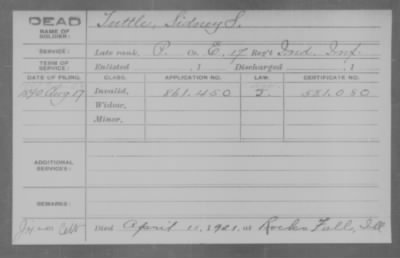 DEAD
NAME OF SOLDIER: Tuttle, Sidney S.
SERVICE: Late rank, P. Co. E, 17 Reg't Ind. Inf.
TERM OF SERVICE: Enlisted , 1 Discharged , 1
DATE OF FILING. CLASS. APPLICATION NO. LAW. CERTIFICATE NO.
1890 Aug 17 Invalid, 861.450 581.080
Widow,
Minor,
ADDITIONAL SERVICES:
REMARKS:
Died April 11, 1921, at Rocks Falls, Ill